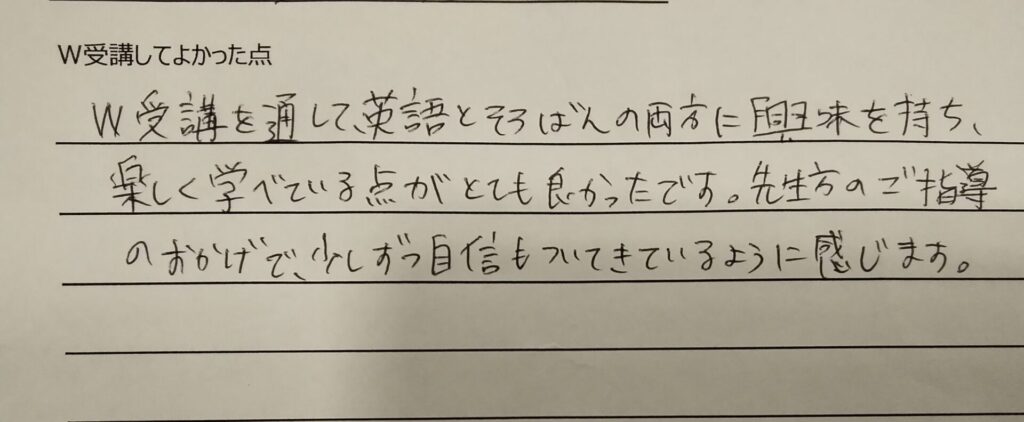 W受講してよかった点
W受講を通して、英語とそろばんの両方に興味を持ち、
楽しく学べている点がとても良かったです。先生方のご指導
のおかげで、少しずつ自信もついてきているように感じます。